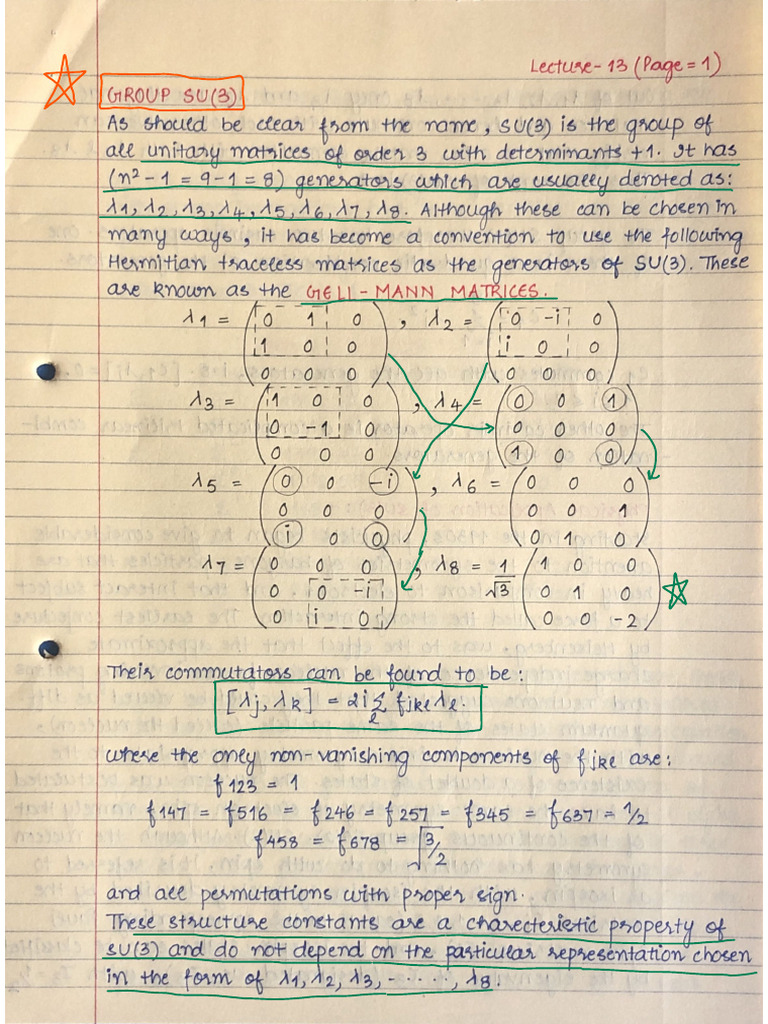 Lecture-13 (Page = 1)
GROUP SU(3)
As should be clear from the name, SU(3) is the group of
all unitary matrices of order 3 with determinants +1. It has
(n² - 1 = 9 - 1 = 8) generators which are usually denoted as:
λ1, λ2, λ3, λ4, λ5, λ6, λ7, λ8. Although these can be chosen in
many ways, it has become a convention to use the following
Hermitian traceless matrices as the generators of SU(3). These
are known as the GELL-MANN MATRICES.
λ1 = ( 0 1 0 ; 1 0 0 ; 0 0 0 ), λ2 = ( 0 -i 0 ; i 0 0 ; 0 0 0 )
λ3 = ( 1 0 0 ; 0 -1 0 ; 0 0 0 ), λ4 = ( 0 0 1 ; 0 0 0 ; 1 0 0 )
λ5 = ( 0 0 -i ; 0 0 0 ; i 0 0 ), λ6 = ( 0 0 0 ; 0 0 1 ; 0 1 0 )
λ7 = ( 0 0 0 ; 0 0 -i ; 0 i 0 ), λ8 = 1/√3 ( 1 0 0 ; 0 1 0 ; 0 0 -2 )
Their commutators can be found to be:
[λj, λk] = 2i Σℓ fjkℓ λℓ.
where the only non-vanishing components of fjkℓ are:
f123 = 1
f147 = f516 = f246 = f257 = f345 = f637 = 1/2
f458 = f678 = √3/2
and all permutations with proper sign.
These structure constants are a charecteristic property of
SU(3) and do not depend on the particular representation chosen
in the form of λ1, λ2, λ3, - · · · ·, λ8.